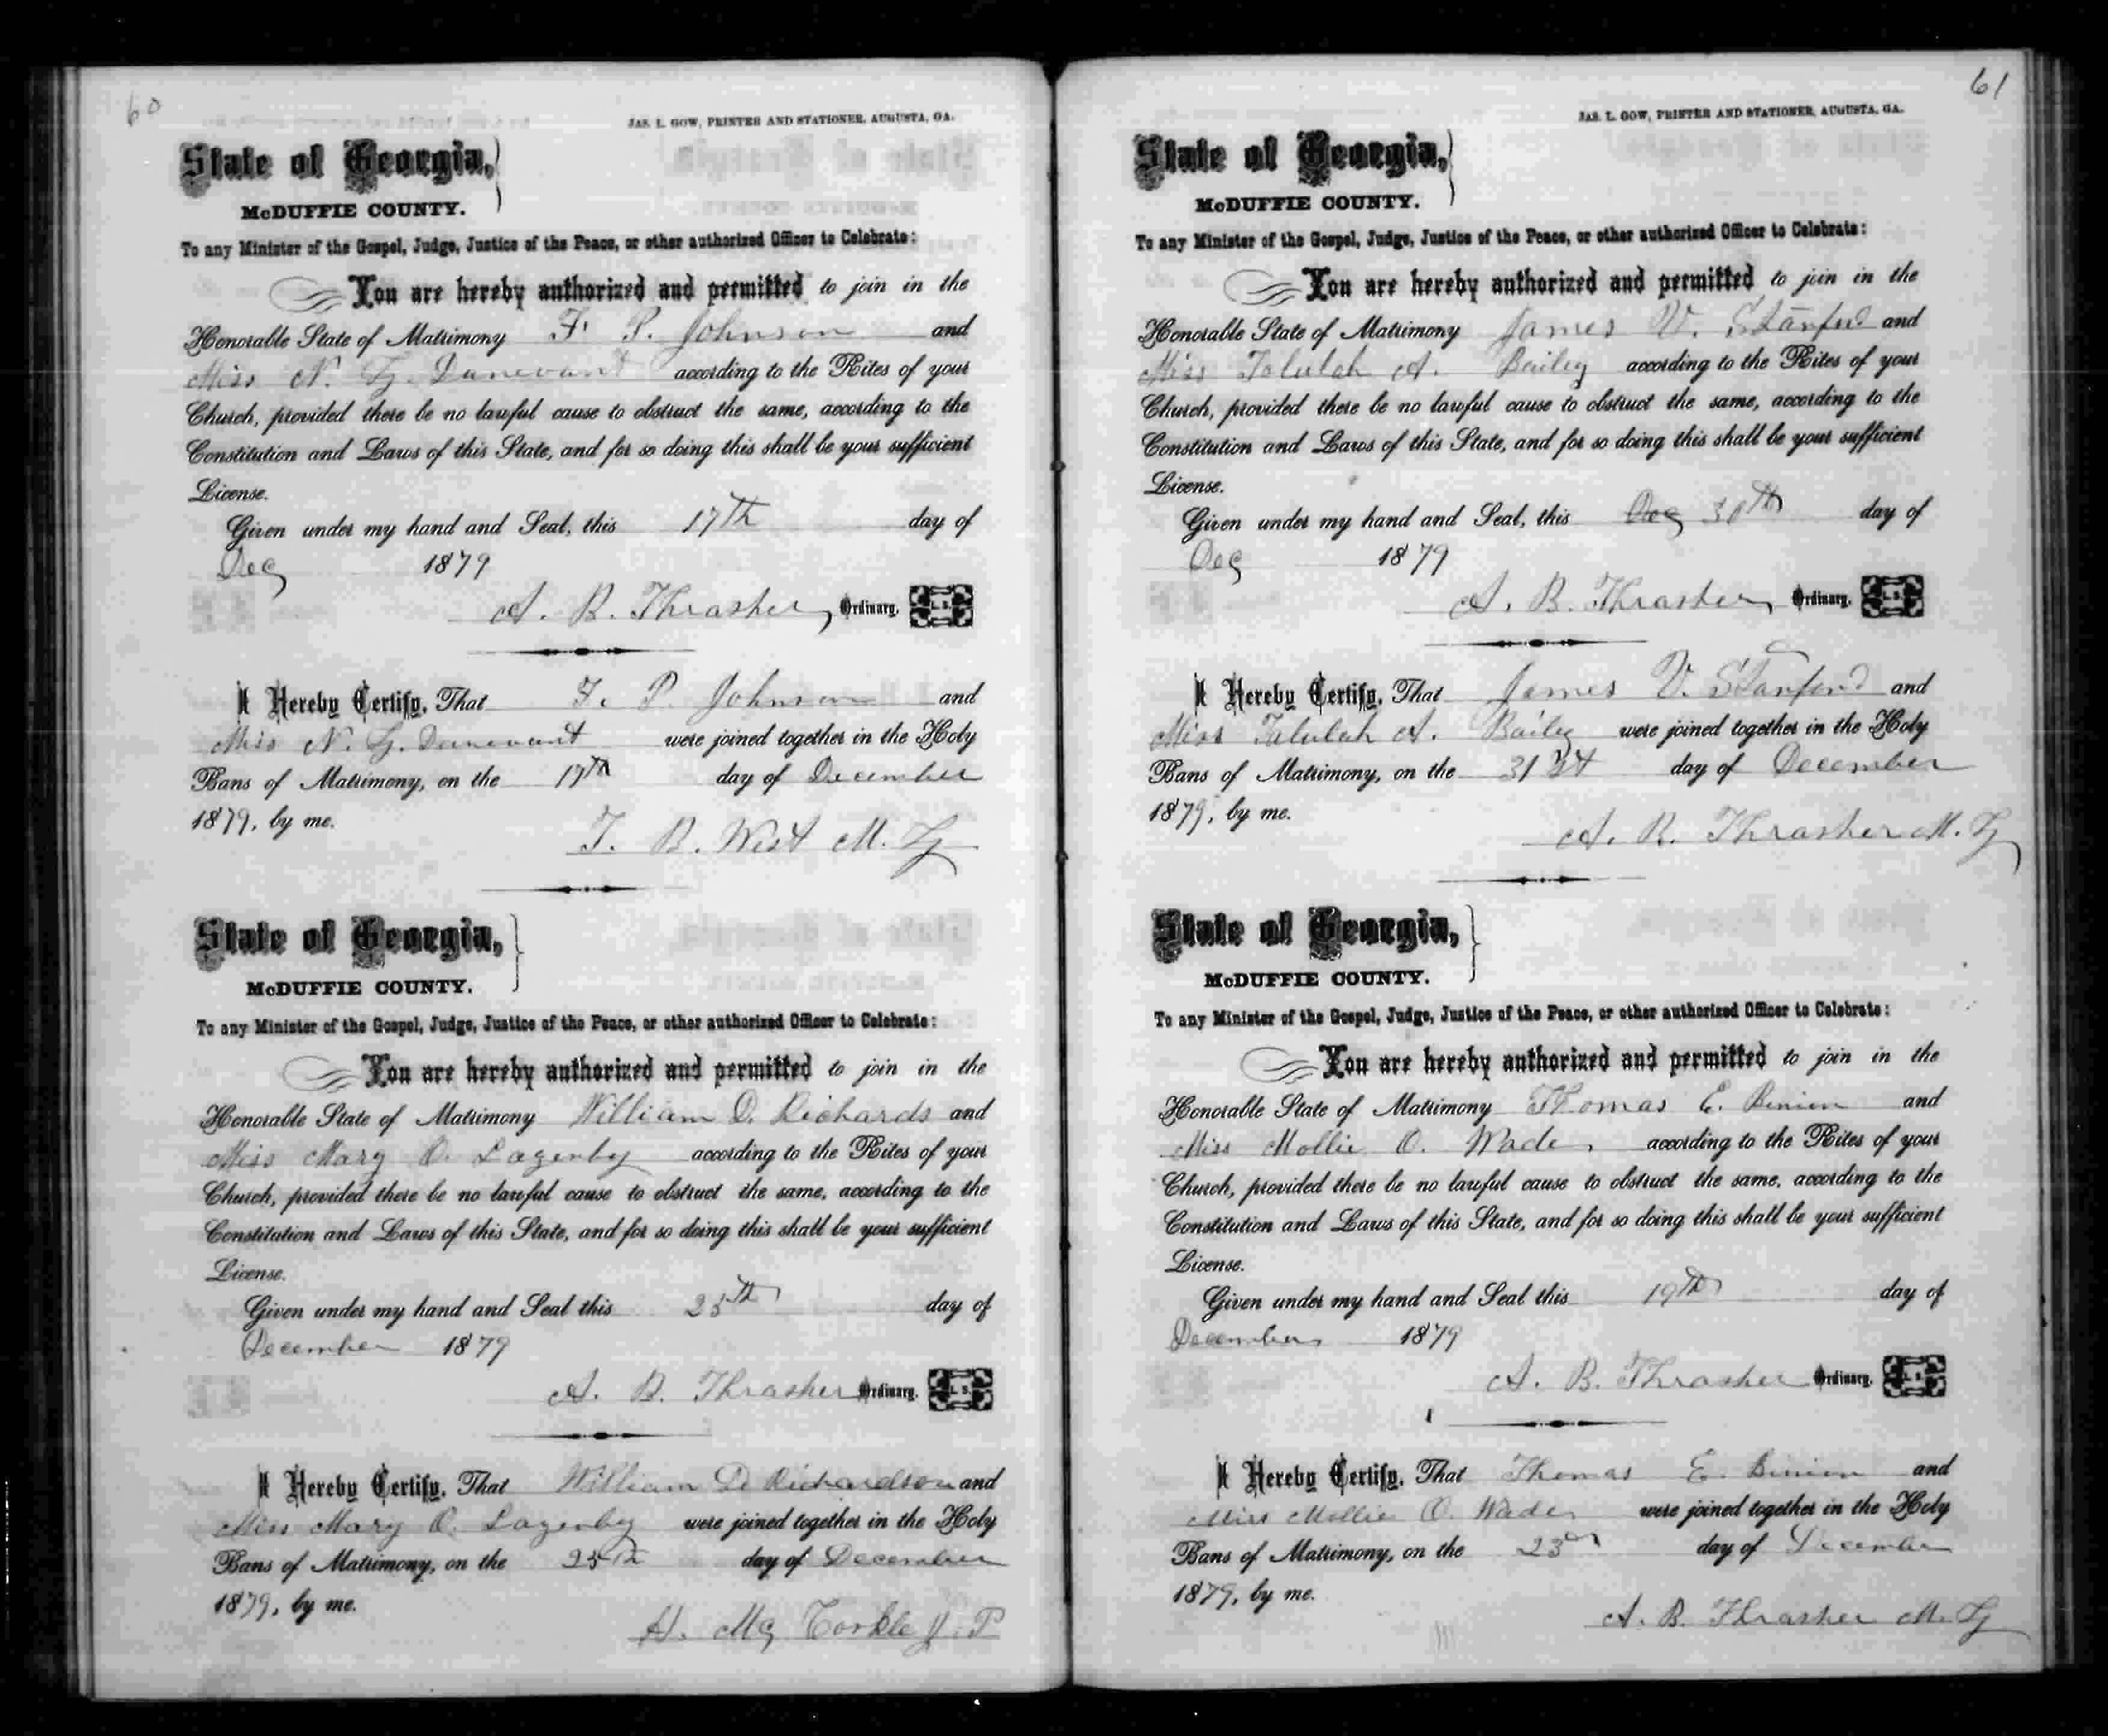 60
JAS. L. GOW, PRINTER AND STATIONER, AUGUSTA, GA.
State of Georgia,
McDUFFIE COUNTY.
To any Minister of the Gospel, Judge, Justice of the Peace, or other authorized Officer to Celebrate:
You are hereby authorized and permitted to join in the
Honorable State of Matrimony F. P. Johnson and
Miss N. G. Danevant according to the Rites of your
Church, provided there be no lawful cause to obstruct the same, according to the
Constitution and Laws of this State, and for so doing this shall be your sufficient
License.
Given under my hand and Seal, this 17th day of
Dec 1879
A. B. Thrasher, Ordinary. L. S.
I Hereby Certify, That F. P. Johnson and
Miss N. G. Danevant were joined together in the Holy
Bans of Matrimony, on the 17th day of December
1879, by me.
T. B. West M. G
State of Georgia,
McDUFFIE COUNTY.
To any Minister of the Gospel, Judge, Justice of the Peace, or other authorized Officer to Celebrate:
You are hereby authorized and permitted to join in the
Honorable State of Matrimony William D. Richards and
Miss Mary O. Lazenby according to the Rites of your
Church, provided there be no lawful cause to obstruct the same, according to the
Constitution and Laws of this State, and for so doing this shall be your sufficient
License.
Given under my hand and Seal this 25th day of
December 1879
A. B. Thrasher Ordinary. L. S.
I Hereby Certify, That William D Richardson and
Miss Mary O. Lazenby were joined together in the Holy
Bans of Matrimony, on the 25th day of December
1879, by me.
H. Mc Corkle J. P
61
JAS. L. GOW, PRINTER AND STATIONER, AUGUSTA, GA.
State of Georgia,
McDUFFIE COUNTY.
To any Minister of the Gospel, Judge, Justice of the Peace, or other authorized Officer to Celebrate:
You are hereby authorized and permitted to join in the
Honorable State of Matrimony James V. Stanford and
Miss Talulah A. Bailey according to the Rites of your
Church, provided there be no lawful cause to obstruct the same, according to the
Constitution and Laws of this State, and for so doing this shall be your sufficient
License.
Given under my hand and Seal, this Dec 30th day of
Dec 1879
A. B. Thrasher, Ordinary. L. S.
I Hereby Certify, That James V. Stanford and
Miss Talulah A. Bailey were joined together in the Holy
Bans of Matrimony, on the 31st day of December
1879, by me.
A. B. Thrasher M. G
State of Georgia,
McDUFFIE COUNTY.
To any Minister of the Gospel, Judge, Justice of the Peace, or other authorized Officer to Celebrate:
You are hereby authorized and permitted to join in the
Honorable State of Matrimony Thomas E. Binion and
Miss Mollie O. Wade according to the Rites of your
Church, provided there be no lawful cause to obstruct the same, according to the
Constitution and Laws of this State, and for so doing this shall be your sufficient
License.
Given under my hand and Seal this 19th day of
December 1879
A. B. Thrasher Ordinary. L. S.
I Hereby Certify, That Thomas E. Binion and
Miss Mollie O. Wade were joined together in the Holy
Bans of Matrimony, on the 23rd day of December
1879, by me.
A. B. Thrasher M. G